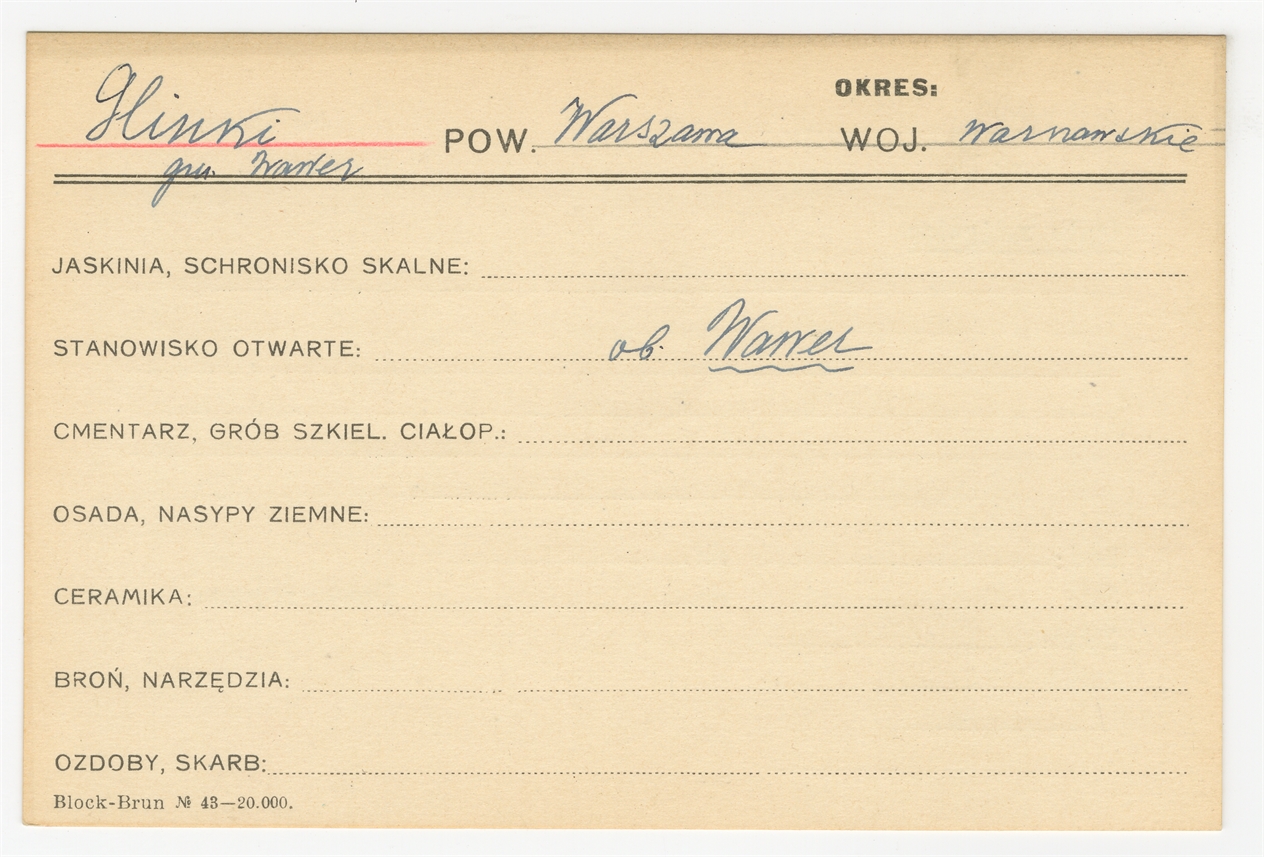 OKRES:
Glinki POW. Warszawa WOJ. Warszawskie
gm. Wawer
JASKINIA, SCHRONISKO SKALNE:
STANOWISKO OTWARTE: ob. Wawer
CMENTARZ, GRÓB SZKIEL. CIAŁOP.:
OSADA, NASYPY ZIEMNE:
CERAMIKA:
BROŃ, NARZĘDZIA:
OZDOBY, SKARB:
Block-Brun № 43—20.000.